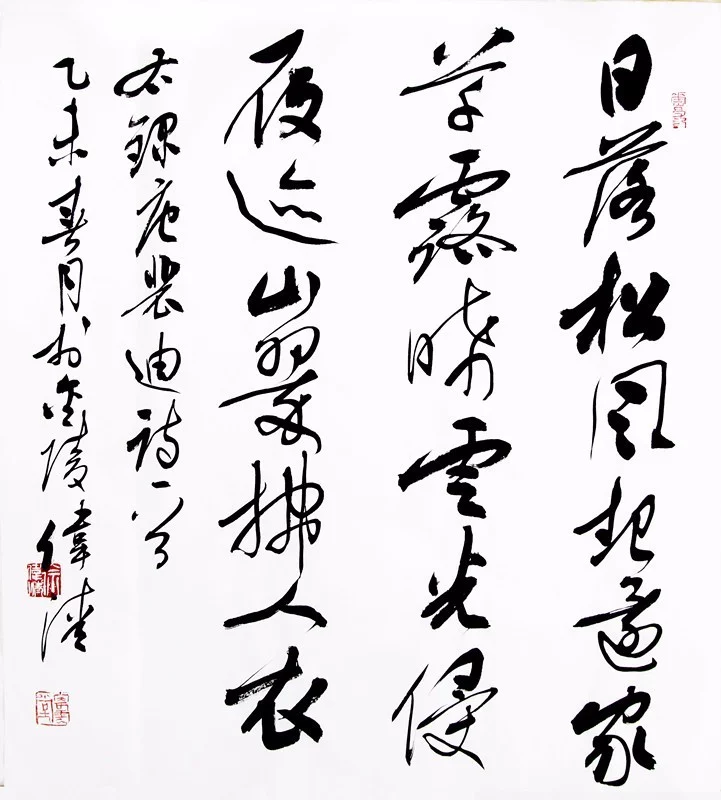 日落松風起還家
草露晞雲光侵
履迹山翠拂人衣
右録唐裴迪詩一首
乙未春月於金陵偉